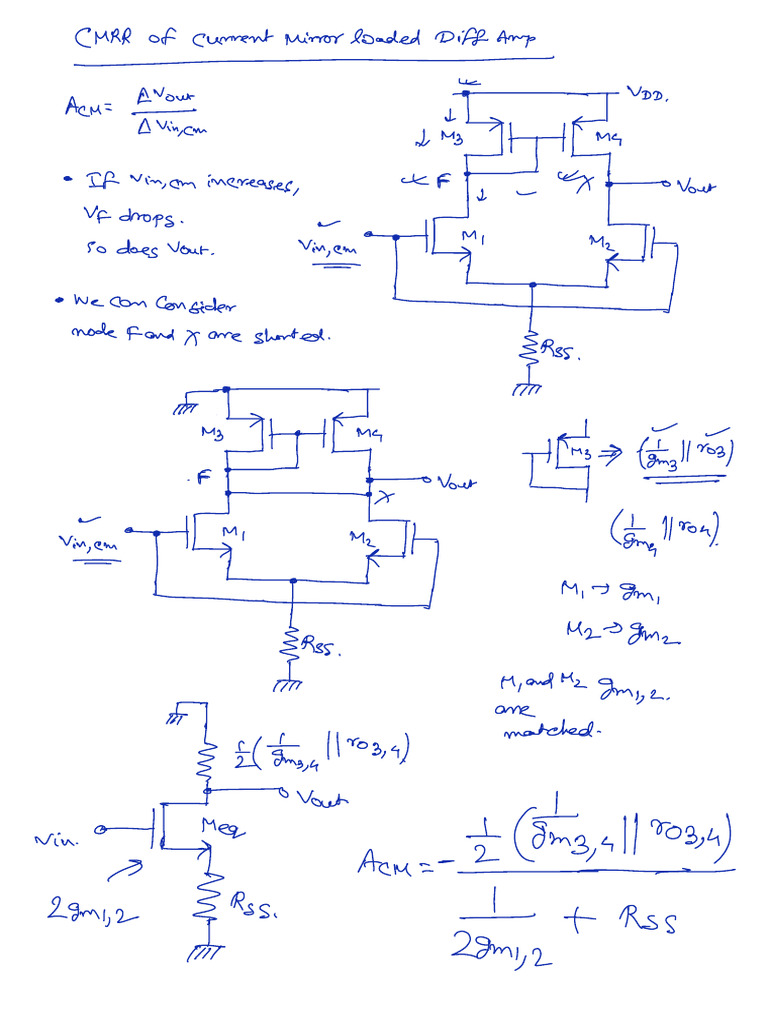 CMRR of Current Mirror loaded Diff Amp
A_CM = ΔVout / ΔVin,cm
• If Vin,cm increases,
VF drops.
So does Vout.
• We can consider
node F and X are shorted.
VDD.
M3
M4
F
X
Vout
M1
M2
Vin,cm
RSS.
M3
M4
F
Vout
X
M1
M2
Vin,cm
RSS.
M3 ⇒ (1/gm3 || ro3)
(1/gm4 || ro4).
M1 → gm1
M2 → gm2
M1 and M2 gm1,2.
are
matched.
1/2 (1/gm3,4 || ro3,4)
Vout
Vin.
Meq
2gm1,2
RSS.
A_CM = - 1/2 (1/gm3,4 || ro3,4) / (1/2gm1,2 + RSS)